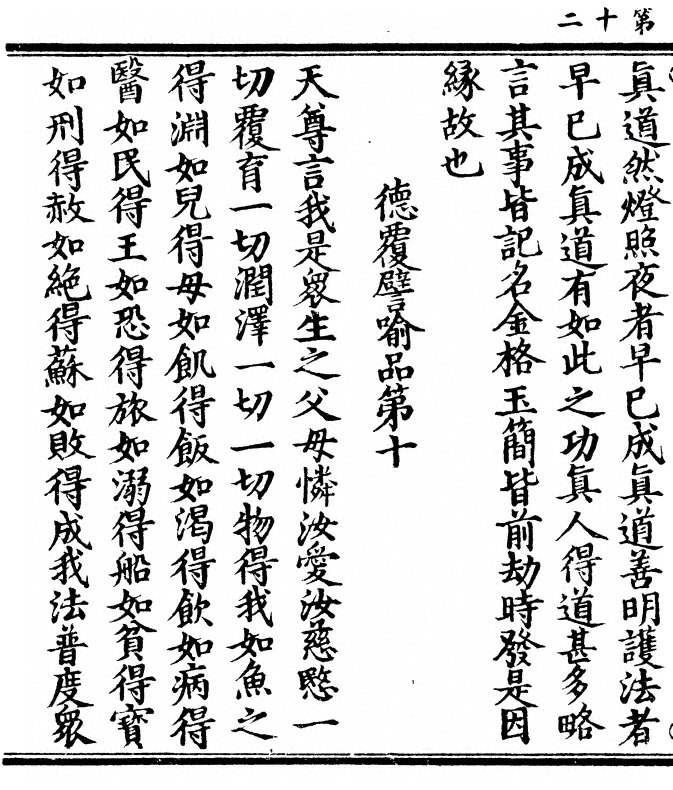 第十二
眞道然燈照夜者早已成眞道善明護法者
早已成眞道有如此之功眞人得道甚多略
言其事皆記名金格玉簡皆前劫時發是因
縁故也
德覆譬喻品第十
天尊言我是衆生之父母憐汝愛汝慈愍一
切覆育一切潤澤一切一切物得我如魚之
得淵如兒得母如飢得飯如渴得飲如病得
醫如民得王如恐得旅如溺得船如貧得寳
如刑得赦如絶得蘇如敗得成我法普度衆